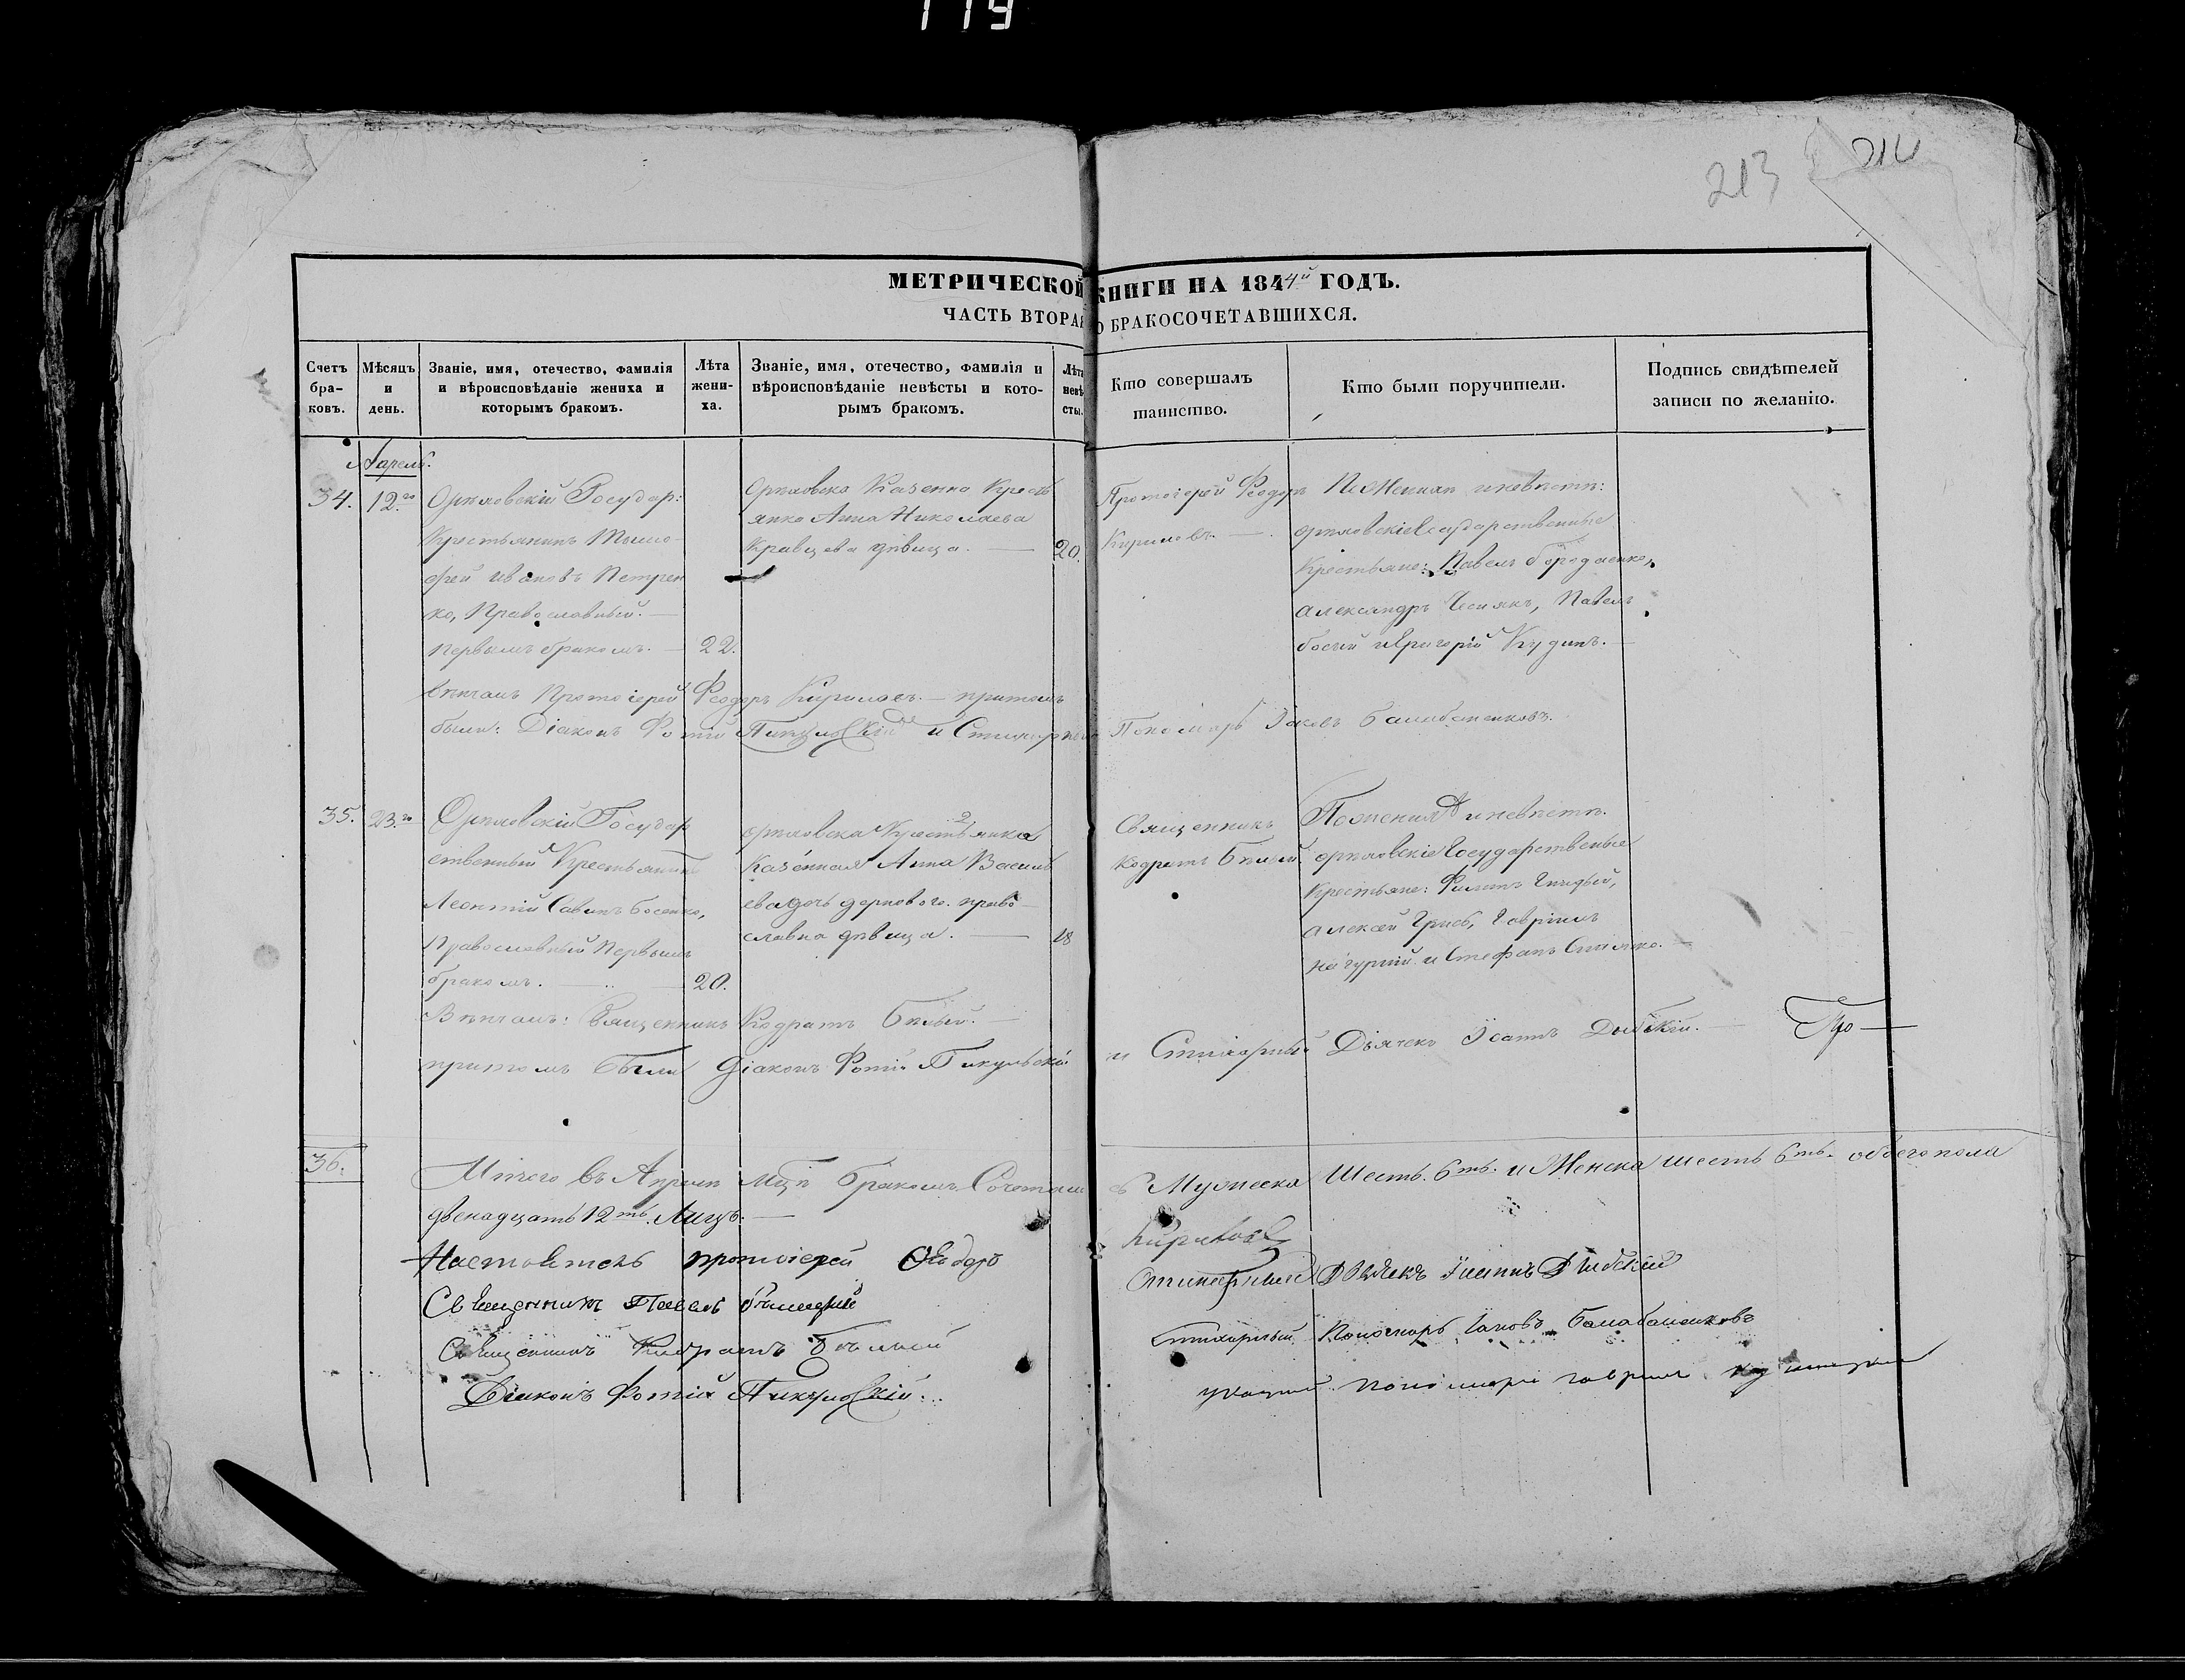 119
213 214
МЕТРИЧЕСКОЙ КНИГИ НА 1844й ГОДЪ.
ЧАСТЬ ВТОРАЯ О БРАКОСОЧЕТАВШИХСЯ.
Счетъ бра-ковъ.
Мѣсяцъ и день.
Званіе, имя, отечество, фамилія и вѣроисповѣданіе жениха и которымъ бракомъ.
Лѣта жени-ха.
Званіе, имя, отечество, фамилія и вѣроисповѣданіе невѣсты и кото-рымъ бракомъ.
Лѣта невѣ-сты.
Кто совершалъ таинство.
Кто были поручители.
Подпись свидѣтелей записи по желанію.
Апрель.
34. 12го
Орѣловскій Государ:
Крестьянинъ Тымо-
фей Ивановъ Петрен
ко, Православный. —
первымъ бракомъ. — 22.
Орѣловска Казенна Кресть
янка Анна Николаева
Кравцова дѣвица. — 20.
Протоіерей Феодоръ
Кириловъ. —
По Женихѣ и невѣстѣ:
орѣловскіе Государственные
Крестьяне: Павелъ Бородаенко,
Александръ Чеснякъ, Павелъ
Босый и Григорій Кудинъ. —
Вѣнчалъ Протоіерей Феодоръ Кириловъ. — притомъ
были: Діаконъ Фотій Пикульскій и Стихарный Пономарь Іаковъ Балабаненковъ.
35. 23го
Орѣловскій Государ
ственный Крестьянинъ
Леонтій Савинъ Босенко,
Православный Первымъ
бракомъ. — 20.
орѣловска Крестьянка
Казенная Анна Василь
ева дочь дернового. право
славна дѣвица. — 18
Священникъ
Кодратъ Бѣлый
По женихѣ и невѣстѣ.
орѣловскіе Государственные
Крестьяне:
Алексѣй Грибъ, Гавріилъ
и Стефанъ
Вѣнчалъ: Священникъ Кодратъ Бѣлый. —
притомъ были Діаконъ Фотій Пикульскій и Стихарный Дьячекъ Іоаннъ Дыбскій. —
36.
Итого въ Апрѣлѣ мцѣ бракомъ Сочеталось Мужеска Шесть. 6ть. и Женска шесть 6ть. обоего пола
двенадцать 12ть Лицъ. —
Настоятель протоіерей Феодоръ Кириловъ
Священникъ Павелъ
Священникъ Кодратъ Бѣлый
Діаконъ Фотій Пикульскій.
Стихарный Дьячекъ Іоаннъ Дыбскій
Стихарный Пономарь Іаковъ Балабаненковъ
указный пономарь Гавріилъ